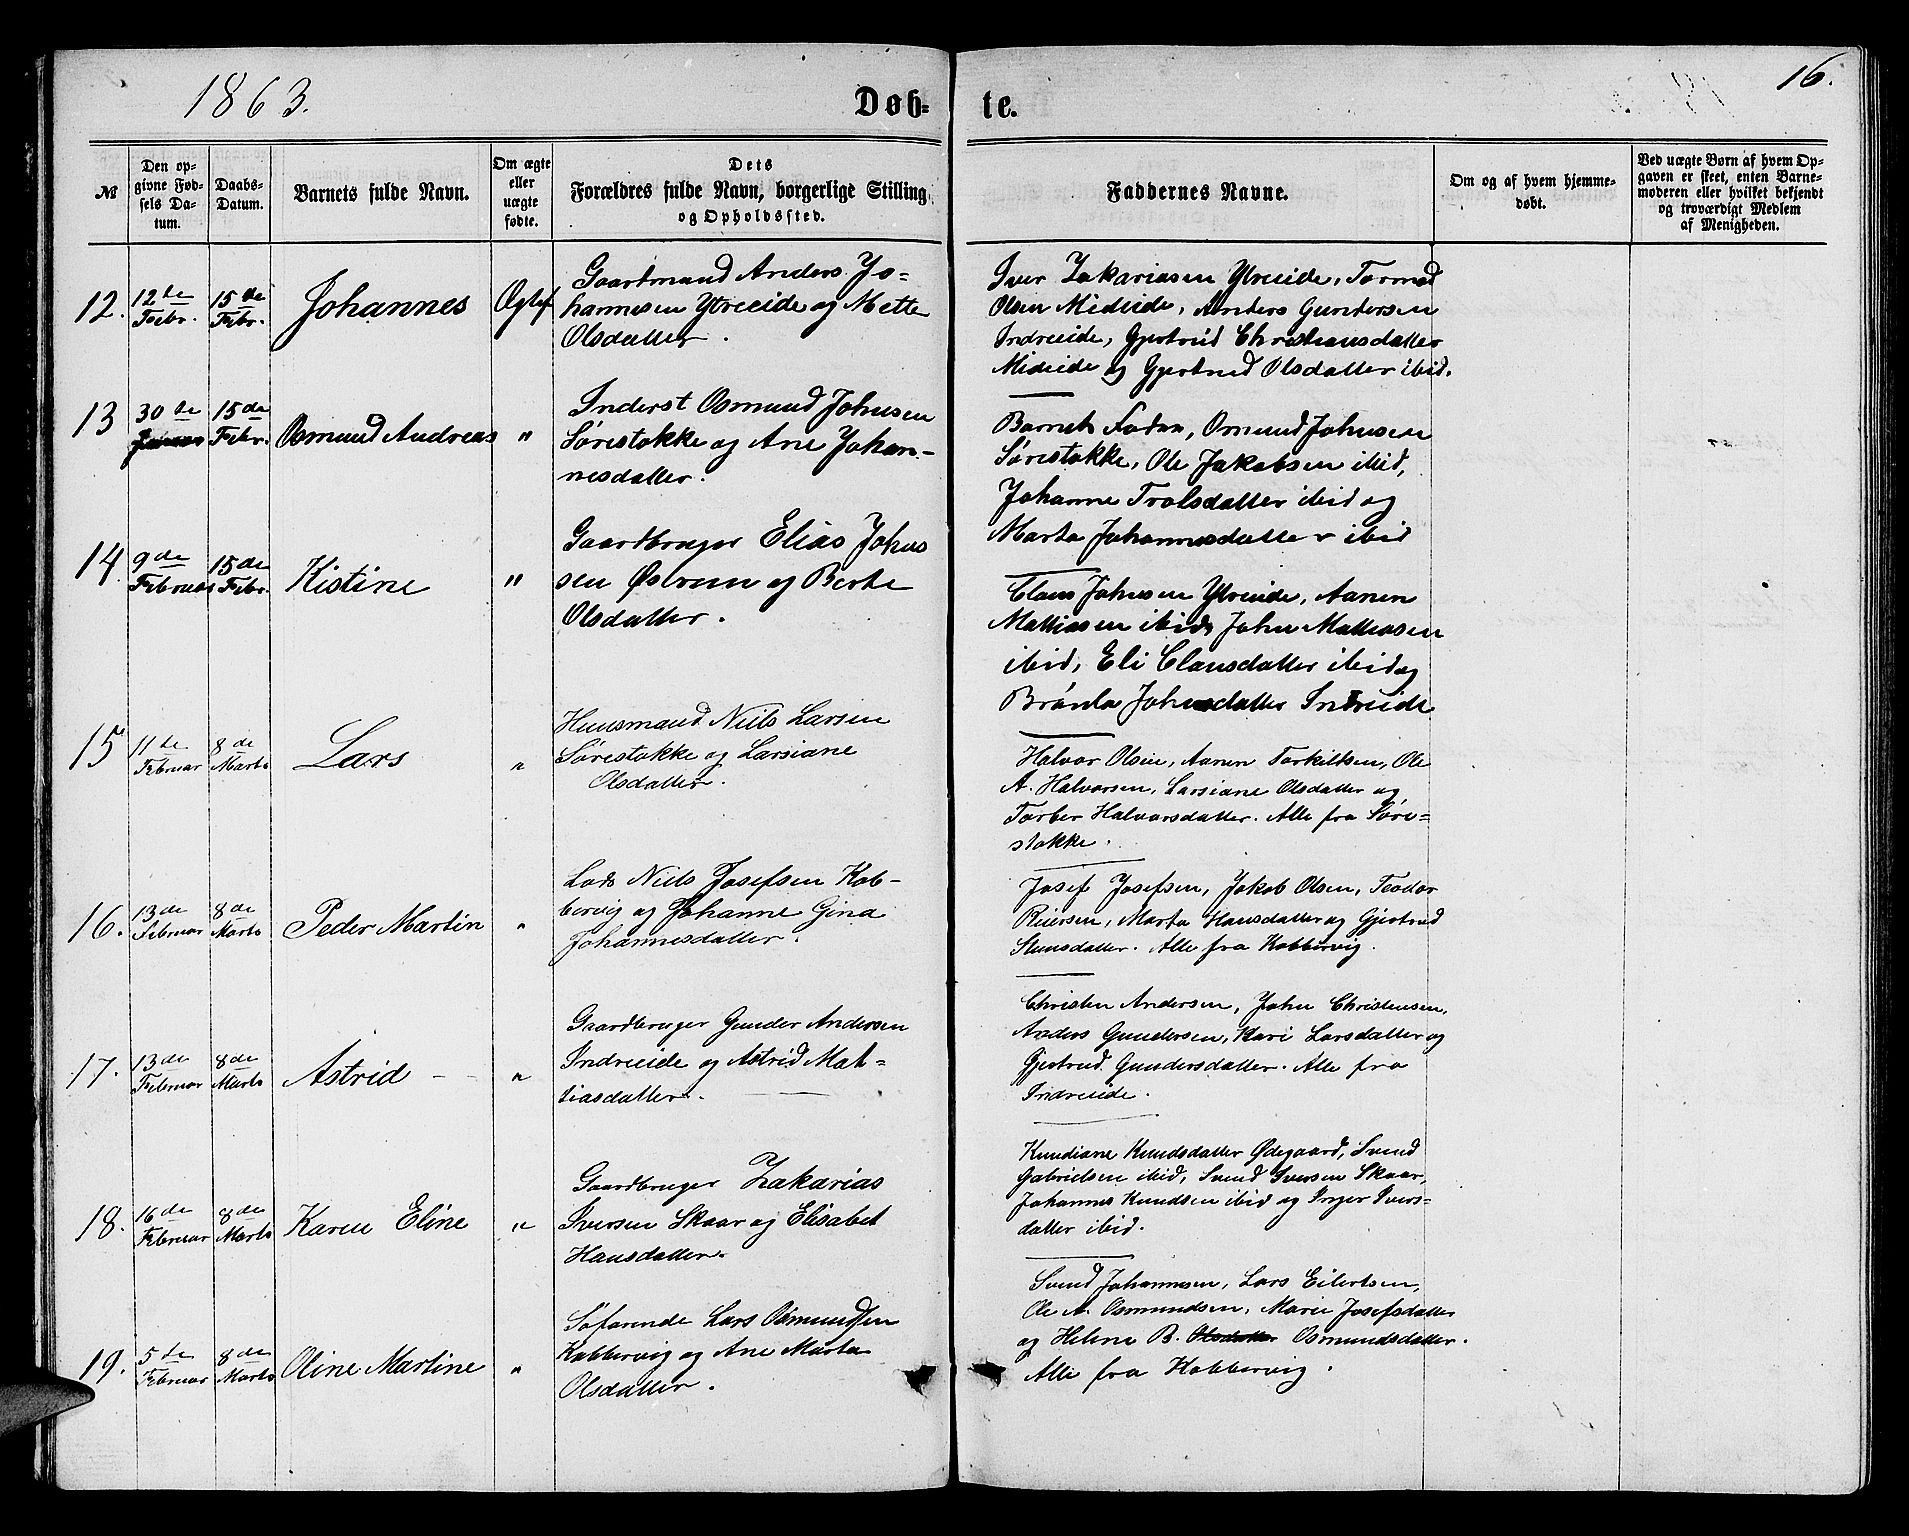 1863.
Døb-
te.
16.
№
Den op-
givne Fød-
sels Da-
tum.
Daabs-
Datum.
Barnets fulde Navn.
Om ægte
eller
uægte
fødte.
Dets
Forældres fulde Navn, borgerlige Stilling
og Opholdssted.
Faddernes Navne.
Om og af hvem hjemme-
døbt.
Ved uægte Børn af hvem Op-
gaven er skeet, enten Barne-
moderen eller hvilket bekjendt
og troværdigt Medlem
af Menigheden.
12.
12te
Febr.
15de
Febr.
Johannes
Ægtef
Gaardmand Anders Jo-
hannesen Ytreeide og Mette
Olsdatter.
Iver Zakariasen Ytreeide, Tormod
Olsen Mideide, Anders Gundersen
Indreeide, Gjertrud Christiansdatter
Mideide og Gjertrud Olsdatter ibid.
13
30te
Januar
15de
Febr.
Osmund Andreas
"
Inderst Osmund Johnsen
Sørestokke og Ane Johan-
nesdatter.
Barnets Fader, Osmund Johnsen
Sørestokke, Ole Jakobsen ibid,
Johanne Trolsdatter ibid og
Marta Johannesdatter ibid
14.
9de
Februar
15de
Febr.
Kistine
"
Gaardbruger Elias Johns
sen Østrem og Berte
Olsdatter.
Claus Johnsen Ytreeide, Aanen
Mattiasen ibid, John Mattiasen
ibid, Eli Clausdatter ibid og
Brønla Johnsdatter Indreeide
15
11te
Februar
8de
Marts
Lars
"
Huusmand Niels Larsen
Sørestokke og Larsiane
Olsdatter.
Halvor Olsen, Aanen Torkiltsen, Ole
A. Halvorsen, Larsiane Olsdatter og
Torber Halvorsdatter. Alle fra Søre-
stokke.
16.
13de
Februar
8de
Marts
Peder Martin
"
Lods Niels Josefsen Kob-
bervig og Johanne Gina
Johannesdatter.
Josef Josefsen, Jakob Olsen, Teodor
Reiersen, Marta Hansdatter og Gjertrud
Steensdatter. Alle fra Kobbervig.
17.
13de
Februar
8de
Marts
Astrid
"
Gaardbruger Gunder Andersen
Indreeide og Astrid Mat-
tiasdatter.
Christen Andersen, John Christensen,
Anders Gundersen, Kari Larsdatter og
Gjertrud Gundersdatter. Alle fra
Indreeide.
18.
16de
Februar
8de
Marts
Karen Eline
"
Gaardbruger Zakarias
Iversen Skaar og Elisabet
Hansdatter.
Knudiane Knudsdatter Ødegaard, Svend
Gabrielsen ibid, Svend Iversen Skaar,
Johannes Knudsen ibid og Inger Ivers-
datter ibid.
19.
5te
Februar
8de
Marts
Oline Martine
"
Søfarende Lars Osmundsen
Kobbervig og Ane Marta
Olsdatter.
Svend Johannesen, Lars Eilertsen,
Ole A. Osmundsen, Marie Josefsdatter
og Helene B. Olsdatter Osmundsdatter.
Alle fra Kobbervig.